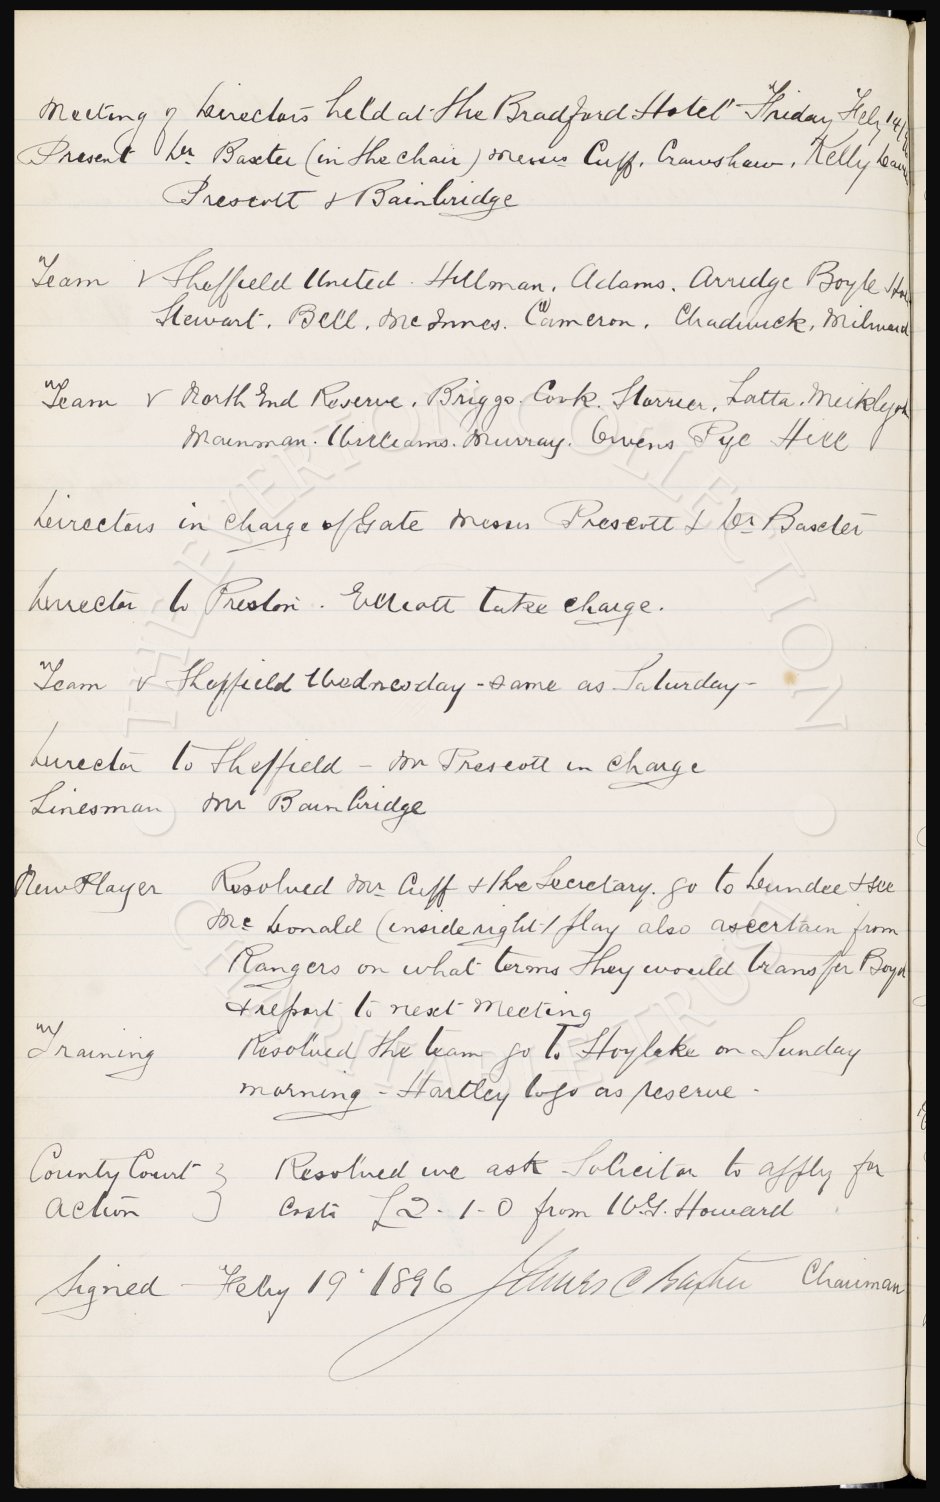 Meeting of Directors held at the Bradford Hotel Friday Feby 14/
Present Dr Baxter (in the chair) Messrs Cuff, Crawshaw, Kelly
Prescott & Bainbridge
Team v Sheffield United. Hillman, Adams, Arridge Boyle
Stewart, Bell, McInnes. Cameron, Chadwick, Milward
Team v North End Reserve, Briggs. Cook. Storrier, Latta, Meiklejoh
Mainman. Williams. Murray. Owens Pye Hill
Directors in charge of Gate Messrs Prescott & Dr Baxter
Director to Preston. Elliott take charge.
Team v Sheffield Wednesday - same as Saturday -
Director to Sheffield - Mr Prescott in charge
Linesman Mr Bainbridge
New Player Resolved Mr Cuff & the Secretary. go to Dundee & see
Mc Donald (inside right) play also ascertain from
Rangers on what terms they would transfer Boyd
& report to next Meeting
Training Resolved the team go to Hoylake on Sunday
morning - Hartley to go as reserve -
County Court } Resolved we ask Solicitor to apply for
Action costs £2-1-0 from W.G. Howard
Signed - Feby 19 1896 James C Baxter Chairman
THE EVERTON COLLECTION
CHARITABLE TRUST